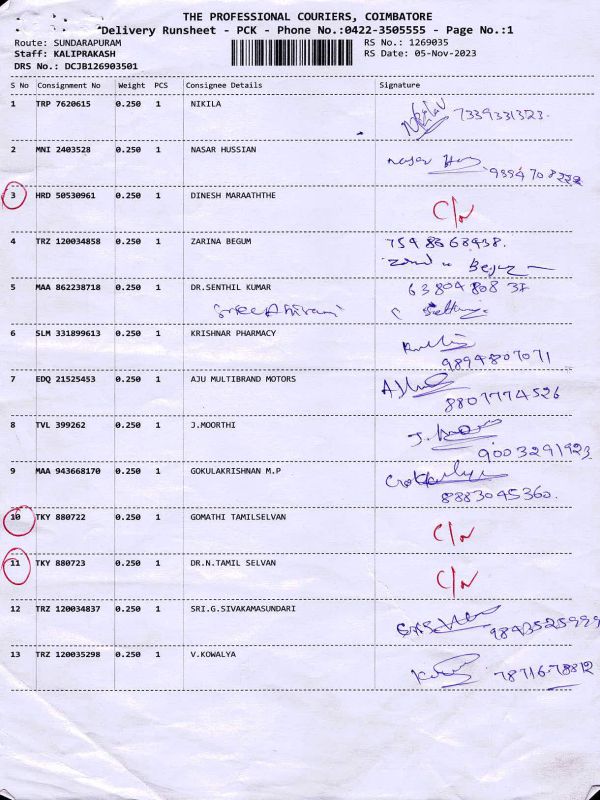 THE PROFESSIONAL COURIERS, COIMBATORE
Delivery Runsheet - PCK - Phone No.:0422-3505555 - Page No.:1
Route: SUNDARAPURAM RS No.: 1269035
Staff: KALIPRAKASH RS Date: 05-Nov-2023
DRS No.: DCJB126903501
S No Consignment No Weight PCS Consignee Details Signature
1 TRP 7620615 0.250 1 NIKILA 7339331323.
2 MNI 2403528 0.250 1 NASAR HUSSIAN Nasar
3 HRD 50530961 0.250 1 DINESH MARAATHTHE C/N
4 TRZ 120034858 0.250 1 ZARINA BEGUM
Begum
5 MAA 862238718 0.250 1 DR.SENTHIL KUMAR
6 SLM 331899613 0.250 1 KRISHNAR PHARMACY
9894807071
7 EDQ 21525453 0.250 1 AJU MULTIBRAND MOTORS
8807774526
8 TVL 399262 0.250 1 J.MOORTHI
9003291923
9 MAA 943668170 0.250 1 GOKULAKRISHNAN M.P
8883045360.
10 TKY 880722 0.250 1 GOMATHI TAMILSELVAN C/N
11 TKY 880723 0.250 1 DR.N.TAMIL SELVAN C/N
12 TRZ 120034837 0.250 1 SRI.G.SIVAKAMASUNDARI 9843525999
13 TRZ 120035298 0.250 1 V.KOWALYA 7871678812